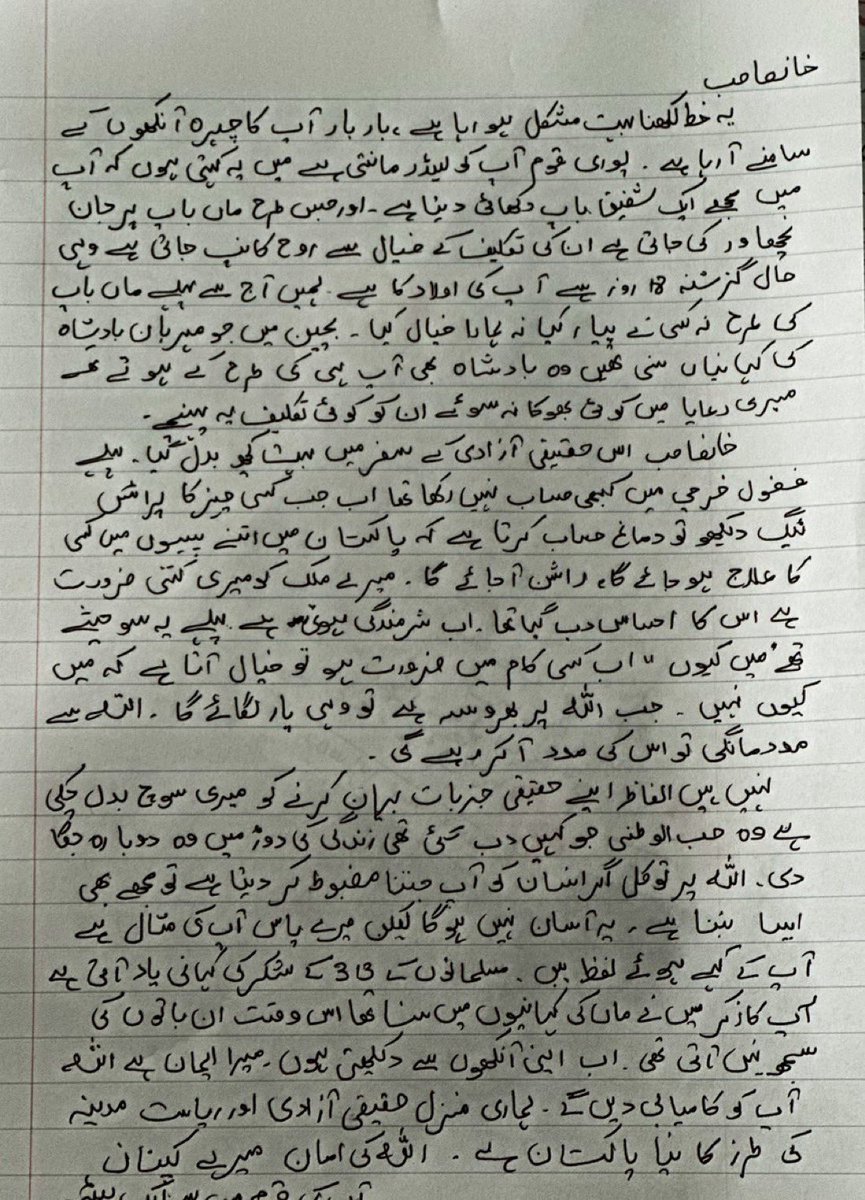 خانصاحب
یہ خط لکھنا بہت مشکل ہو رہا ہے، بار بار آپ کا چہرہ آنکھوں کے
سامنے آ رہا ہے۔ پوری قوم آپ کو لیڈر مانتی ہے میں یہ کہتی ہوں کہ آپ
میں مجھے ایک شفیق باپ دکھائی دیتا ہے۔ اور جس طرح ماں باپ پر جان
نچھاور کی جاتی ہے ان کی تکلیف کے خیال سے روح کانپ جاتی ہے وہی
حال گزشتہ 18 روز سے آپ کی اولاد کا ہے۔ ہمیں آج سے پہلے ماں باپ
کی طرح نہ کسی نے پیار کیا نہ ہمارا خیال کیا۔ بچپن میں جو مہربان بادشاہ
کی کہانیاں سنی تھیں وہ بادشاہ بھی آپ ہی کی طرح کے ہوتے تھے
میری رعایا میں کوئی بھوکا نہ سوئے ان کو کوئی تکلیف نہ پہنچے۔
خانصاحب اس حقیقی آزادی کے سفر میں بہت کچھ بدل گیا۔ پہلے
فضول خرچی میں کبھی حساب نہیں رکھا تھا اب جب کسی چیز کا پرائس
ٹیگ دیکھو تو دماغ حساب کرتا ہے کہ پاکستان میں اتنے پیسوں میں کسی
کا علاج ہو جائے گا، راشن آ جائے گا۔ میرے ملک کو میری کتنی ضرورت
ہے اس کا احساس دب گیا تھا۔ اب شرمندگی ہوتی ہے پہلے یہ سوچتے
تھے "میں کیوں" اب کسی کام میں ضرورت ہو تو خیال آتا ہے کہ میں
کیوں نہیں۔ جب اللہ پر بھروسہ ہے تو وہی پار لگائے گا۔ اللہ سے
مدد مانگی تو اس کی مدد آ کر رہے گی۔
نہیں ہیں الفاظ اپنے حقیقی جزبات بیان کرنے کو میری سوچ بدل چکی
ہے وہ حب الوطنی جو کہیں دب گئی تھی زندگی کی دوڑ میں وہ دوبارہ جگا
دی۔ اللہ پر توکل اگر انسان کو آپ جتنا مضبوط کر دیتا ہے تو مجھے بھی
ایسا بننا ہے۔ یہ آسان نہیں ہوگا لیکن میرے پاس آپ کی مثال ہے
آپ کے کہے ہوئے لفظ ہیں۔ مسلمانوں کے 313 کے لشکر کی کہانی یاد آتی ہے
آپ کا ذکر میں نے ماں کی کہانیوں میں سنا تھا اس وقت ان باتوں کی
سمجھ نہیں آتی تھی۔ اب اپنی آنکھوں سے دیکھتی ہوں۔ میرا ایمان ہے اللہ
آپ کو کامیابی دیں گے۔ ہماری منزل حقیقی آزادی اور ریاست مدینہ
کی طرز کا نیا پاکستان ہے۔ اللہ کی امان میرے کپتان